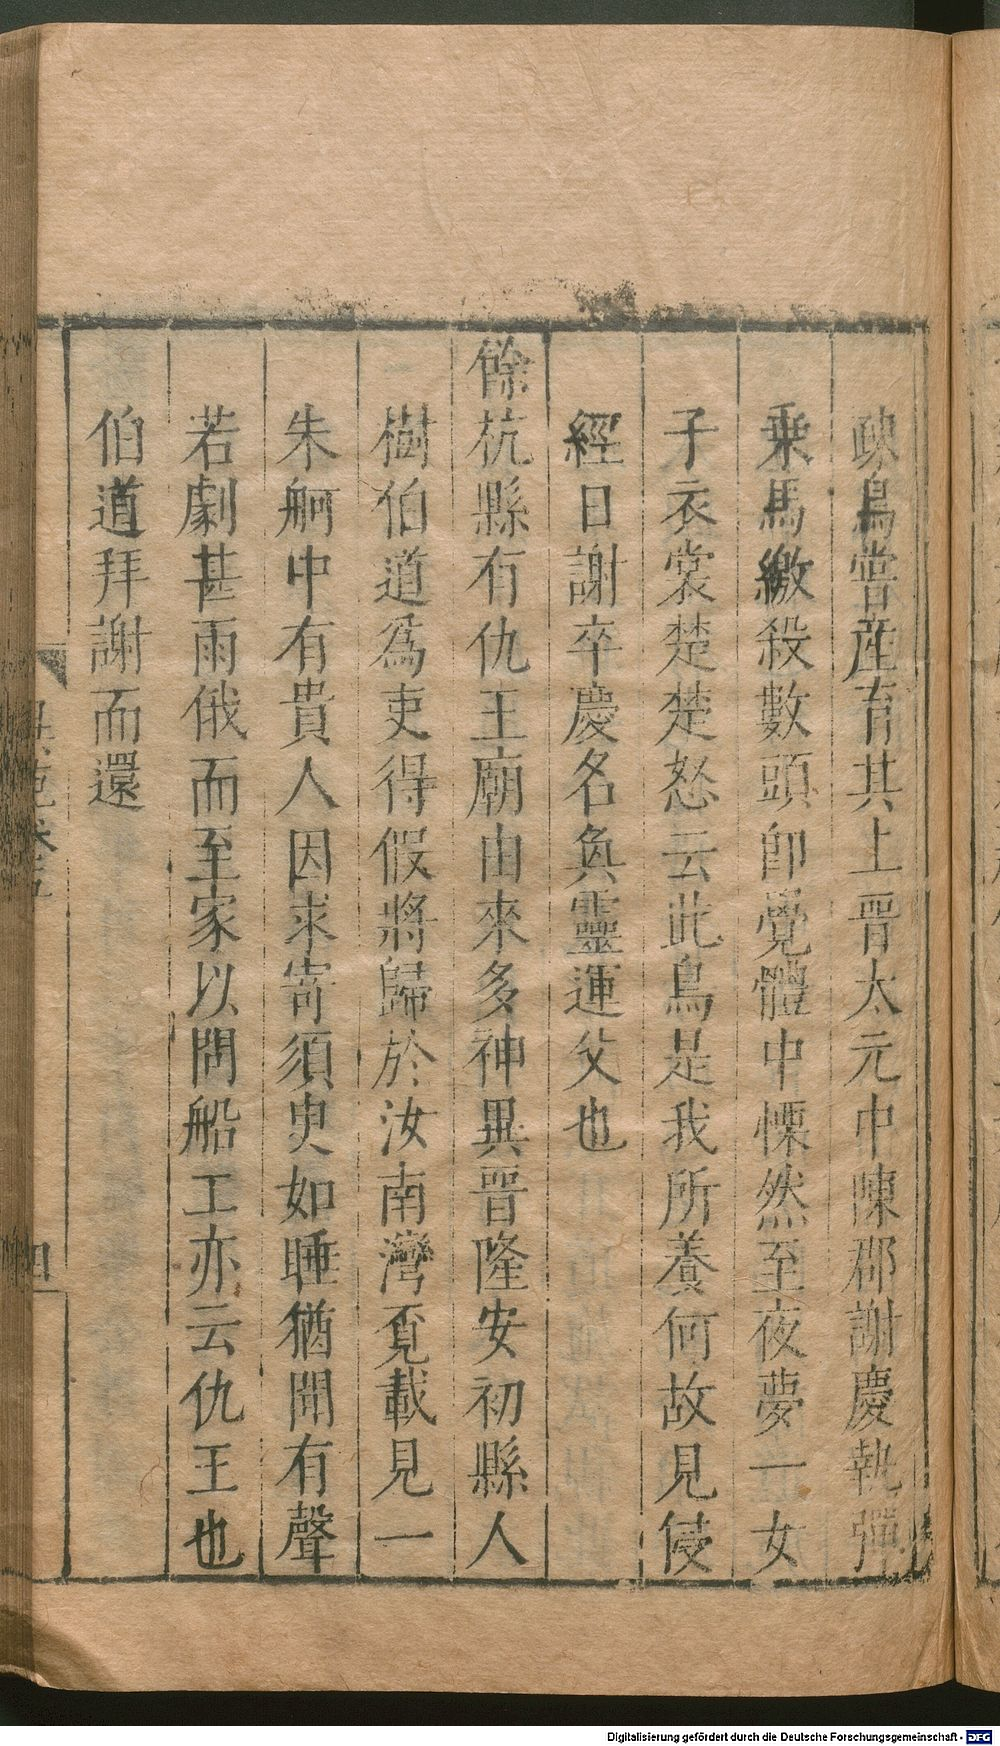 疎鳥嘗産育其上晋太元中陳郡謝慶執彈
乗馬繳殺數頭卽覺體中慄然至夜夢一女
子衣裳楚楚怒云此鳥是我所養何故見侵
經日謝卒慶名奐靈運父也
餘杭縣有仇王廟由來多神異晋隆安初縣人
樹伯道爲吏得假將歸於汝南灣覓載見一
朱舸中有貴人因求寄須臾如睡猶聞有聲
若劇甚雨俄而至家以問船工亦云仇王也
伯道拜謝而還
異苑卷五
四
Digitalisierung gefördert durch die Deutsche Forschungsgemeinschaft - DFG